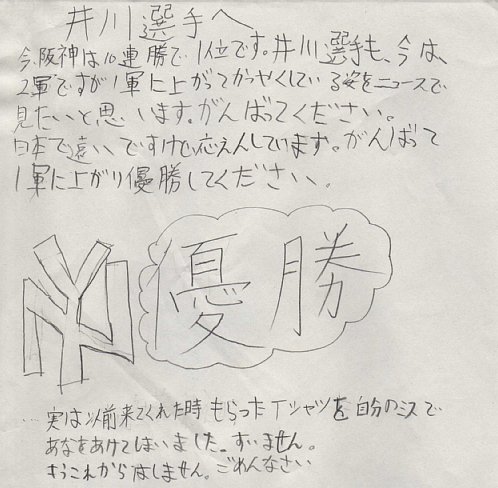 井川選手へ
今、阪神は10連勝で1位です。井川選手も、今は、
2軍ですが1軍に上がってかつやくしている姿をニュースで
見たいと思います。がんばってください。
日本で遠いですけど応えんしています。がんばって
1軍に上がり優勝してください。
NY 優勝
…実は以前来てくれた時もらったTシャツを自分のミスで
あなをあけてしまいました。すいません。
もうこれからはしません。ごめんなさい